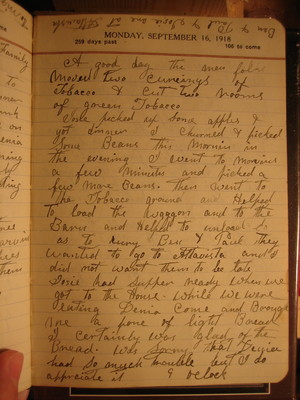 MONDAY, SEPTEMBER 16, 1918
259 days past
106 to come
A good day the men folks
Moved two Cureings of
tobacco & Cut two rooms
of green Tobacco
Josie picked up Some apples &
got dinner I Churned & picked
Some Beans this Mornin in
the evening I went to Movins
a few Minutes and picked a
few More Beans. then went to
the Tobacco ground and Helped
to load the waggon and to the
Barn and Helped to unload it
as to hurry Ben & Paul they
wanted to go to Altavista and I
did not want them to be late
Josie had Supper ready when we
got to the House. while we were
eating Denia Come and Broug
Me a pone of light Bread
I certainly was glad of the
Bread. was Sorry that Denia
had so much trouble but I do
appreciate it 9 oclock
Family